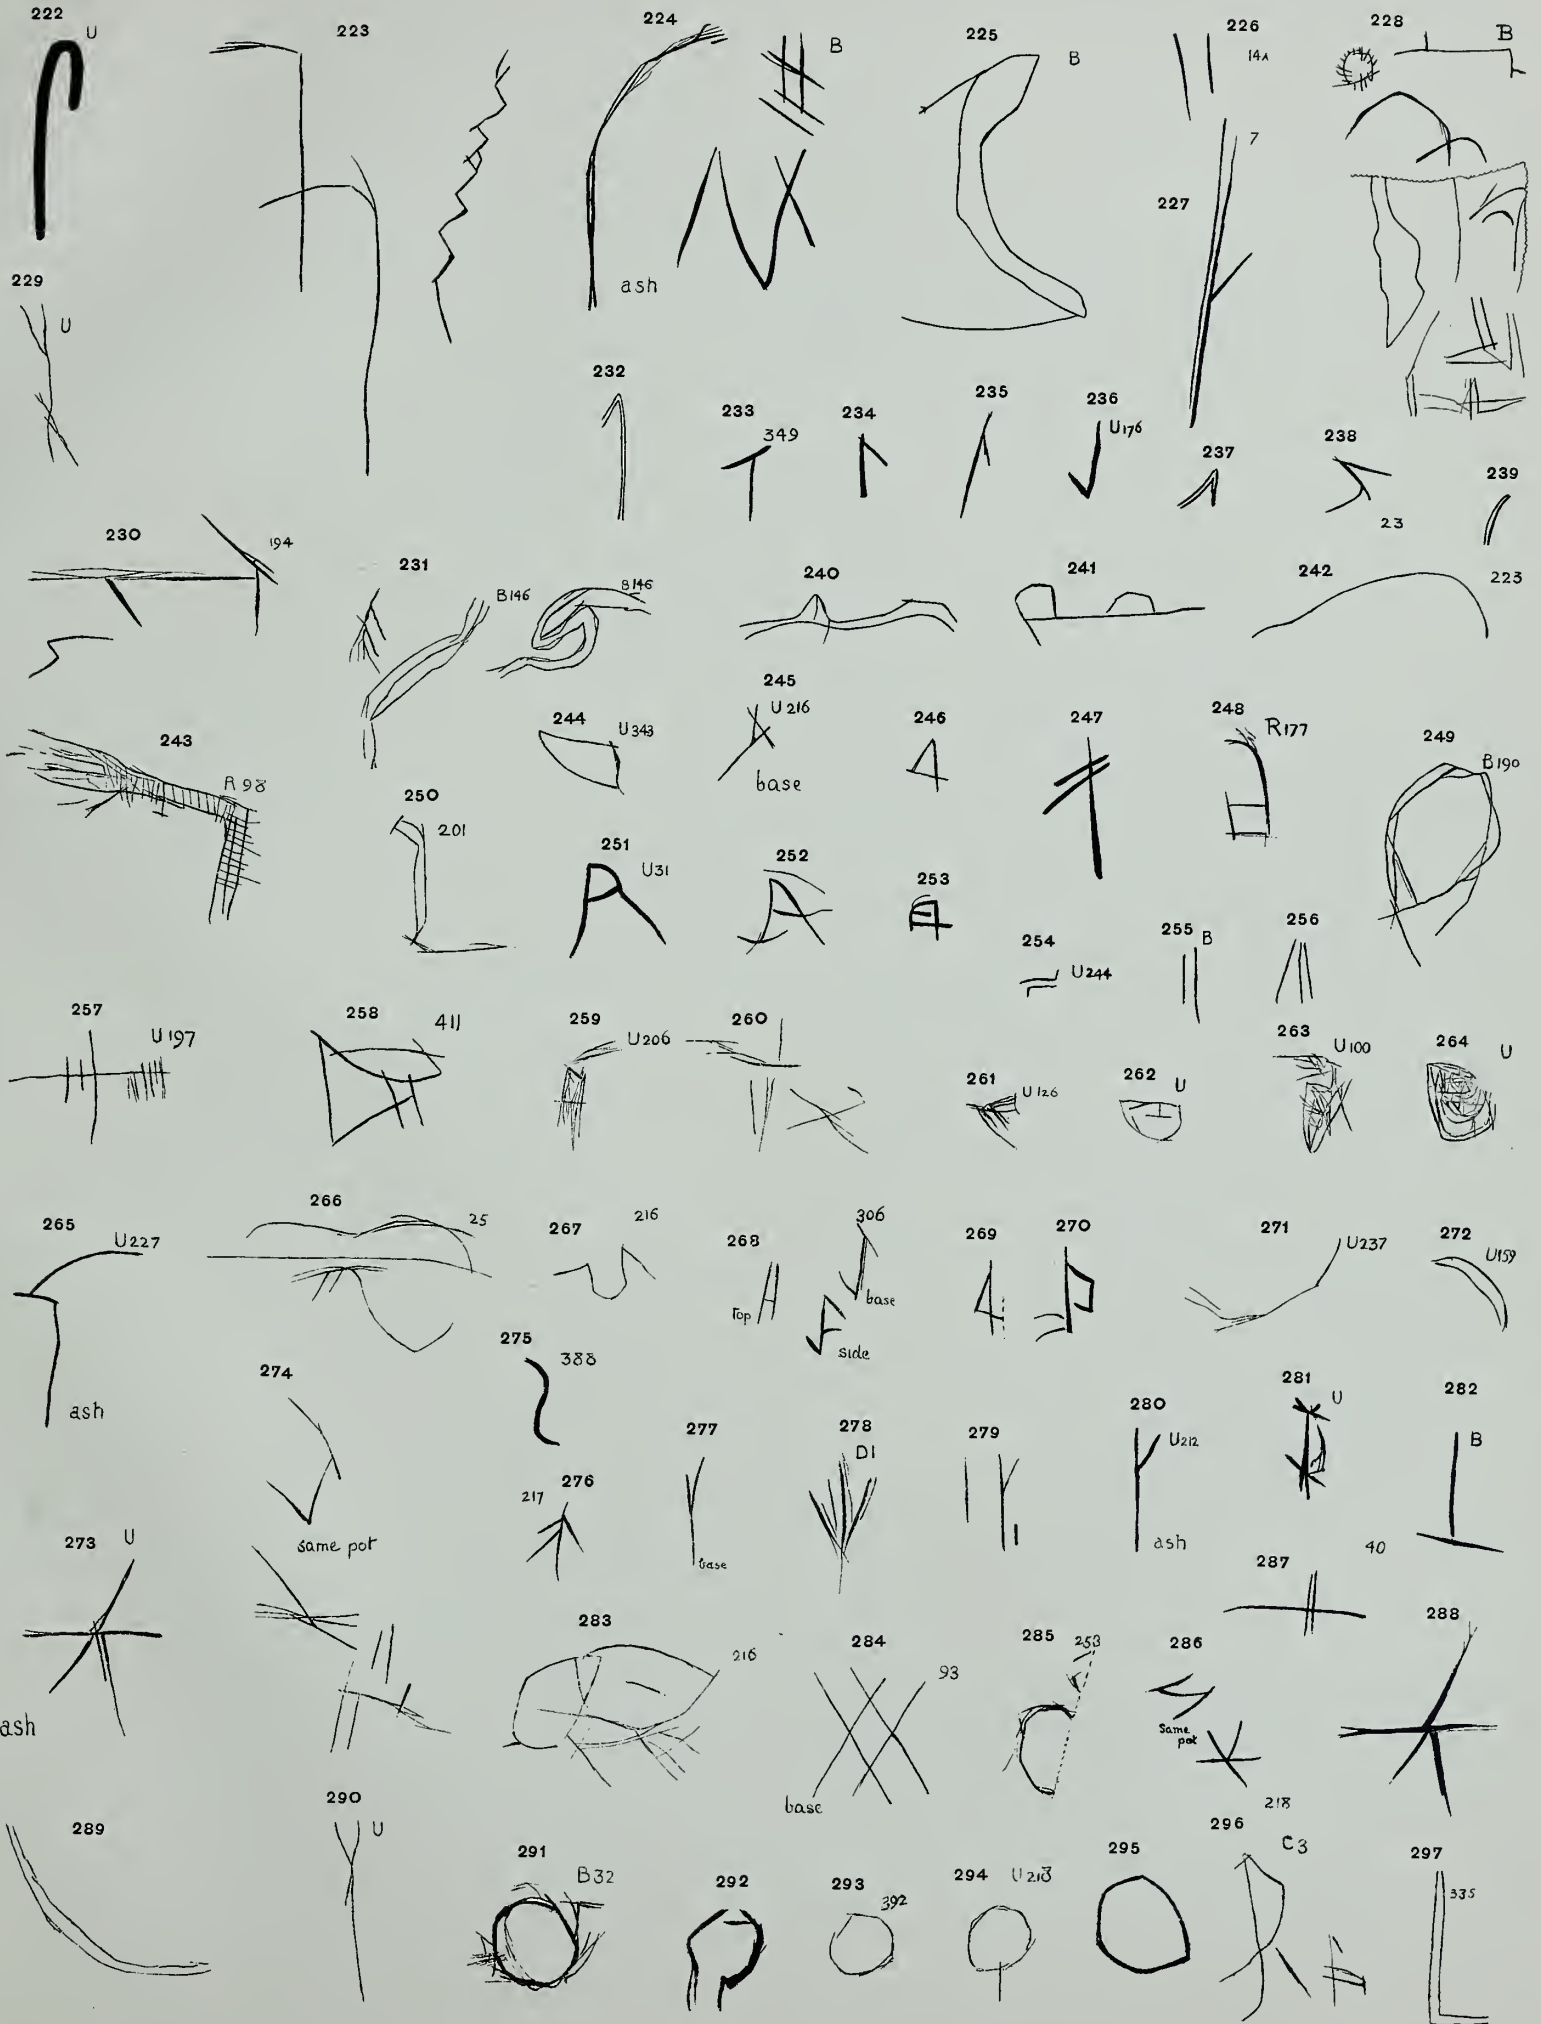 222 U
223
224 B
ash
225 B
226 14A
227 7
228 B
229 U
230 194
231 B146 B146
232
233 349
234
235
236 U176
237
238 23
239
240
241
242 223
243 R98
244 U343
245 U216
base
246
247
248 R177
249 B190
250 201
251 U31
252
253
254 U244
255 B
256
257 U197
258 411
259 U206
260
261 U126
262 U
263 U100
264 U
265 U227
ash
266 25
267 216
268 306
Top base
side
269
270
271 U237
272 U159
273 U
ash
274
same pot
275 388
276 217
277
base
278 D1
279
280 U212
ash
281 U
282 B
283 216
284 93
base
285 253
286
same
pot
287 40
288
289
290 U
291 B32
292
293 392
294 U213
295
296 218
C3
297 335